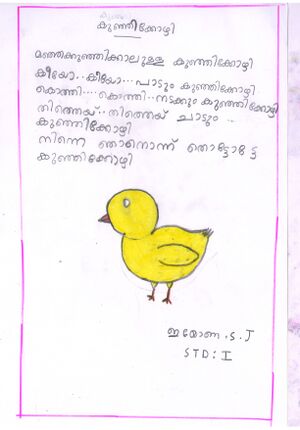 കുഞ്ഞിക്കോഴി
മഞ്ഞക്കുഞ്ഞിക്കാലുള്ള കുഞ്ഞിക്കോഴി
കീയോ..കീയോ... പാടും കുഞ്ഞിക്കോഴി
കൊത്തി....കൊത്തി..നടക്കും കുഞ്ഞിക്കോഴി
തിത്തെയ്..തിത്തെയ് ചാടും ..
കുഞ്ഞിക്കോഴി
നിന്നെ ഞാനൊന്ന് തൊട്ടോട്ടേ
കുഞ്ഞിക്കോഴി
ഇയോണ .S.J
STD: I